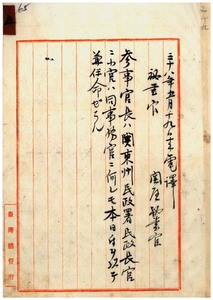 三十八年五月十九日来電譯
秘書官
関屋秘書官
参事官長ハ関東州民政署民政長官
ニ小官ハ同事務官ニ何レモ本日付ヲ以テ
兼任命ゼラル
65